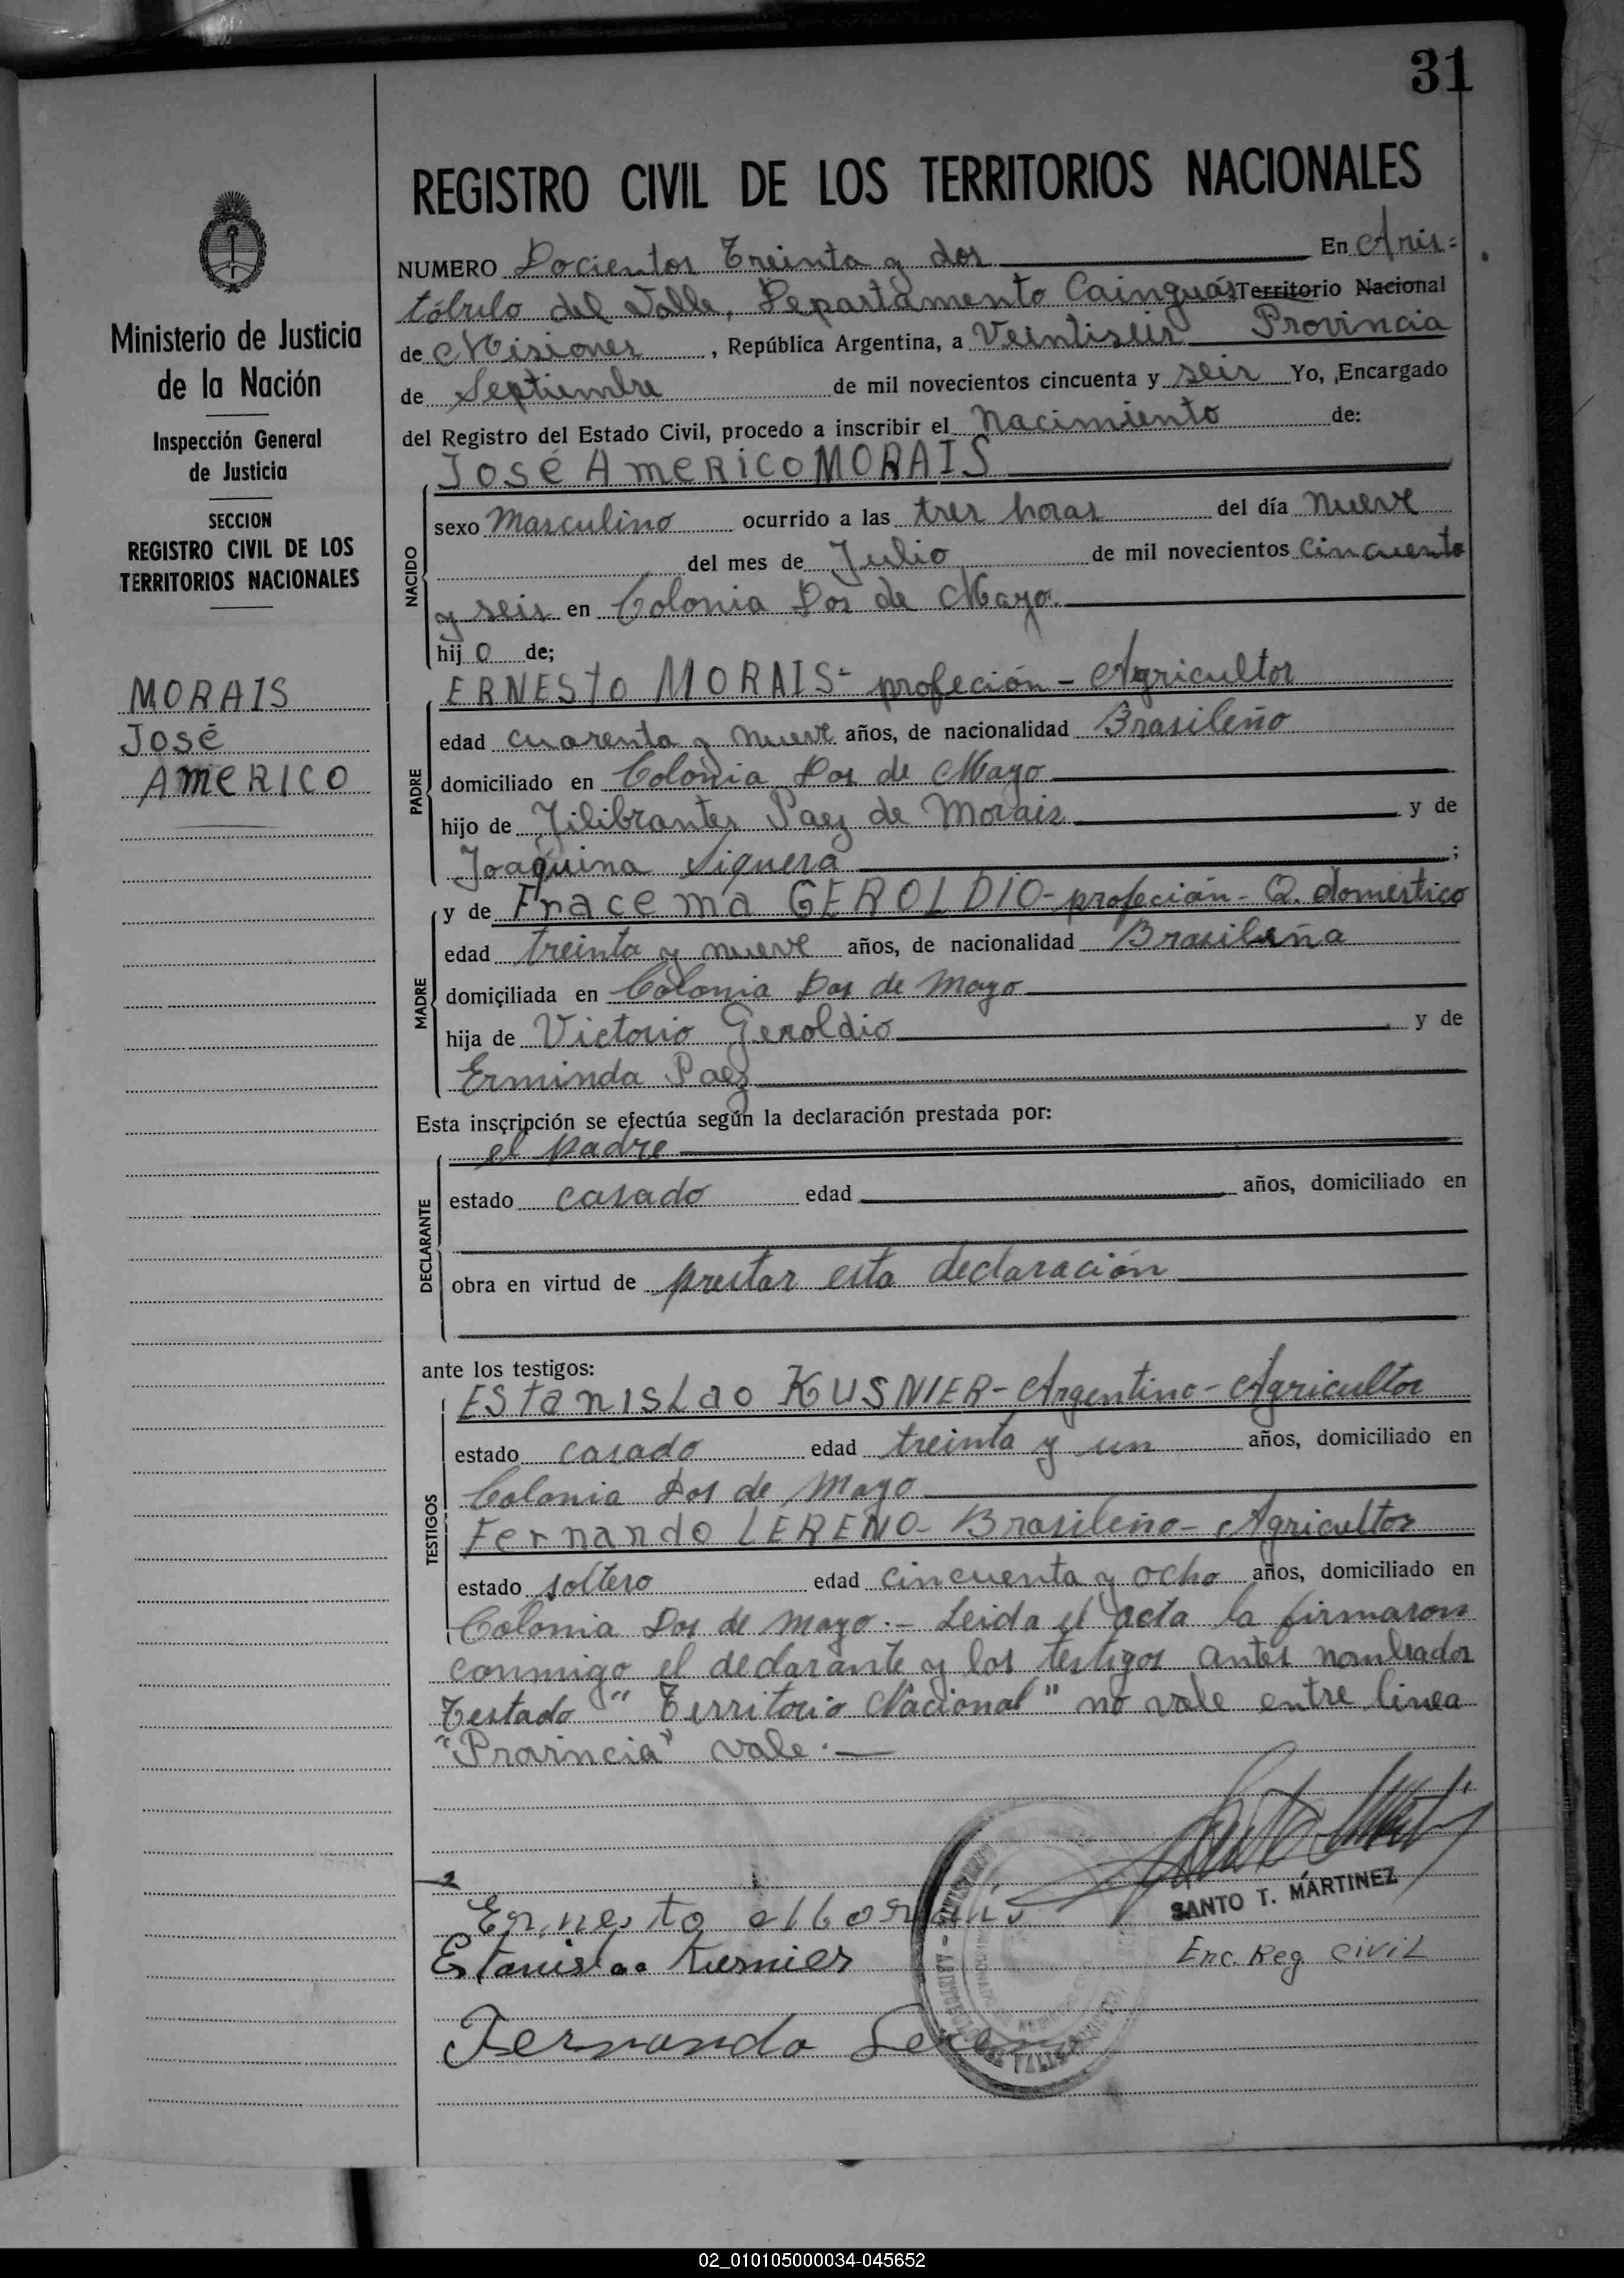 31
REGISTRO CIVIL DE LOS TERRITORIOS NACIONALES
NUMERO Docientos Treinta y dos En Aris=
tóbulo del Valle, Departamento Cainguás Territorio Nacional
Provincia
de Misiones, República Argentina, a Veintiseis
de Septiembre de mil novecientos cincuenta y seis Yo, Encargado
del Registro del Estado Civil, procedo a inscribir el Nacimiento de:
José AmERICO MORAIS
NACIDO
sexo Masculino ocurrido a las tres horas del día Nueve
del mes de Julio de mil novecientos cincuenta
y seis en Colonia Dos de Mayo.
hij o de;
PADRE
ERNESTO MORAIS- profeción - Agricultor
edad cuarenta y nueve años, de nacionalidad Brasileño
domiciliado en Colonia Dos de Mayo
hijo de Filibrantes Paez de Morais y de
Joaquina Siquera;
MADRE
y de Fracema GEROLDIO- profeción- Q. domestico
edad treinta y nueve años, de nacionalidad Brasileña
domiciliada en Colonia Dos de Mayo
hija de Victorio Geroldio y de
Erminda Paez
Esta inscripción se efectúa según la declaración prestada por:
DECLARANTE
el padre
estado casado edad años, domiciliado en
obra en virtud de prestar esta declaración
ante los testigos:
TESTIGOS
EStanisLao KUSNIER- Argentino- Agricultor
estado casado edad treinta y un años, domiciliado en
Colonia Dos de Mayo
Fernando LERENO- Brasileño- Agricultor
estado soltero edad cincuenta y ocho años, domiciliado en
Colonia Dos de Mayo.- Leida el acta la firmaron
conmigo el declarante y los testigos antes nombrados
Testado "Territorio Nacional" no vale entre linea
"Provincia" vale.-
SANTO T. MARTINEZ
Enc. Reg. CiviL
Ernesto Morais
Estanislao Kusnier
Fernando Lereno
Ministerio de Justicia
de la Nación
Inspección General
de Justicia
SECCION
REGISTRO CIVIL DE LOS
TERRITORIOS NACIONALES
MORAIS
José
AmERICO
02_010105000034-045652